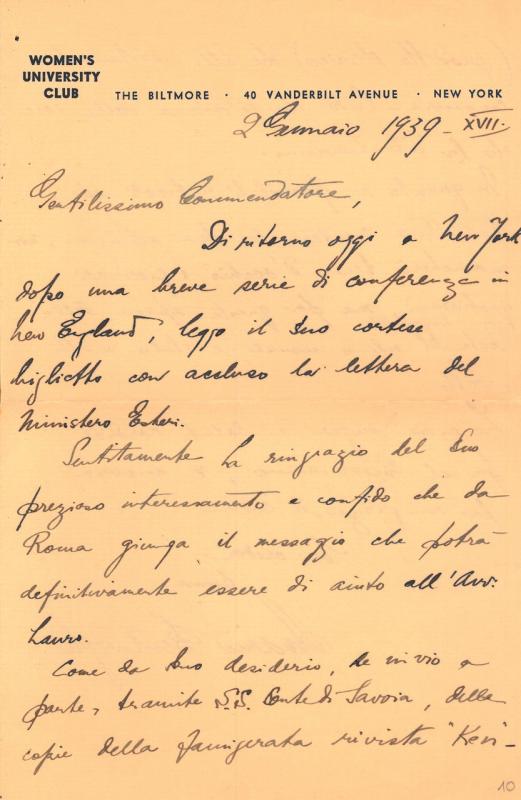 WOMEN'S
UNIVERSITY
CLUB
THE BILTMORE · 40 VANDERBILT AVENUE · NEW YORK
2 Gennaio 1939 - XVII.
Gentilissimo Commendatore,
Di ritorno oggi a New York
dopo una breve serie di conferenze in
New England, leggo il Suo cortese
biglietto con accluso la lettera del
Ministero Esteri.
Sentitamente La ringrazio del Suo
prezioso interessamento e confido che da
Roma giunga il messaggio che potrà
definitivamente essere di aiuto all'Avv.
Lauro.
Come da Suo desiderio, Le invio a
parte, tramite S.S. Conte di Savoia, delle
copie della famigerata rivista "Ken"-
10